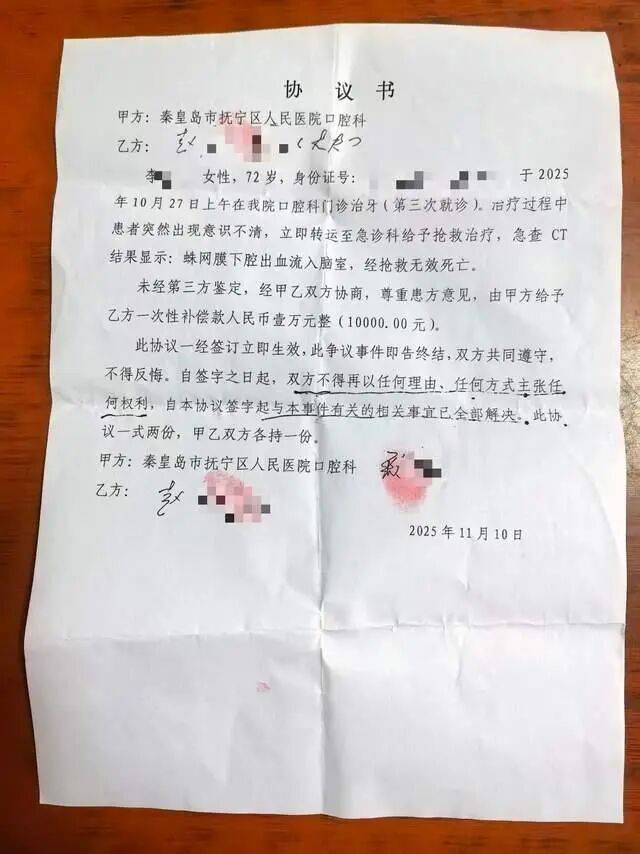 协 议 书
甲方：秦皇岛市抚宁区人民医院口腔科
乙方：赵
李 女性，72岁，身份证号： 于2025
年10月27日上午在我院口腔科门诊治牙（第三次就诊）。治疗过程中
患者突然出现意识不清，立即转运至急诊科给予抢救治疗，急查 CT
结果显示：蛛网膜下腔出血流入脑室，经抢救无效死亡。
未经第三方鉴定，经甲乙双方协商，尊重患方意见，由甲方给予
乙方一次性补偿款人民币壹万元整（10000.00元）。
此协议一经签订立即生效，此争议事件即告终结，双方共同遵守，
不得反悔。自签字之日起，双方不得再以任何理由、任何方式主张任
何权利，自本协议签字起与本事件有关的相关事宜已全部解决。此协
议一式两份，甲乙双方各持一份。
甲方：秦皇岛市抚宁区人民医院口腔科
乙方：赵
2025年11月10日